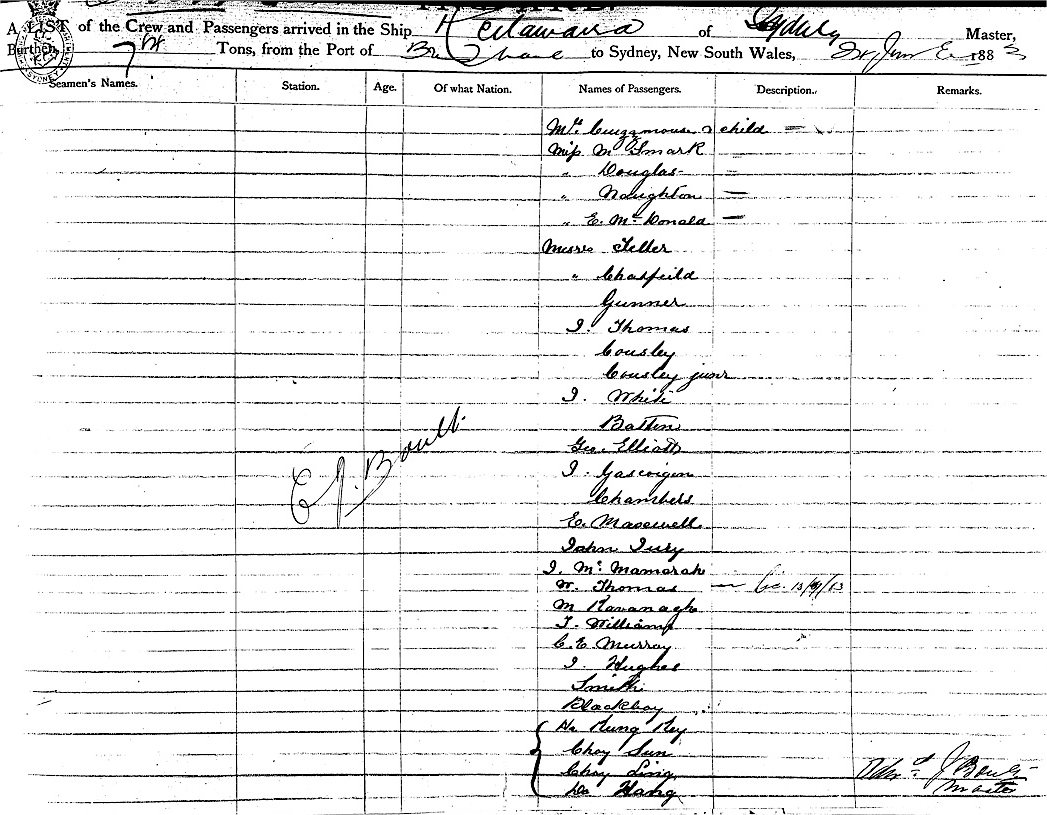 A LIST of the Crew and Passengers arrived in the Ship Ketawarra of Sydney Master,
Burthen Tons, from the Port of Brisbane to Sydney, New South Wales, 1883
Seamen's Names. Station. Age. Of what Nation. Names of Passengers. Description. Remarks.
& child
Miss McSmark
" Douglas
" Naughton
" E. McDonald
Messrs Teller
" Chatfield
Gunner
I. Thomas
Cousley
Cousley junr
I. White
Battin
Geo. Elliott
I. Gascoigen
Chambers
E. Maxwell
John Tury
I. McMamarah
W. Thomas
M Kavanagh
T. Williams
C. E. Murray
I Hughes
Smith
Blackboy
Ah Kung Key
Choy Sun
Choy Ling
Hang
E J. Boult
J Boult
Master